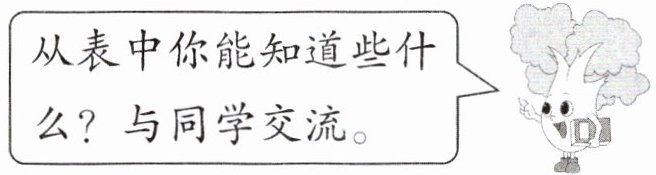 从表中你能知道些什
么？与同学交流。